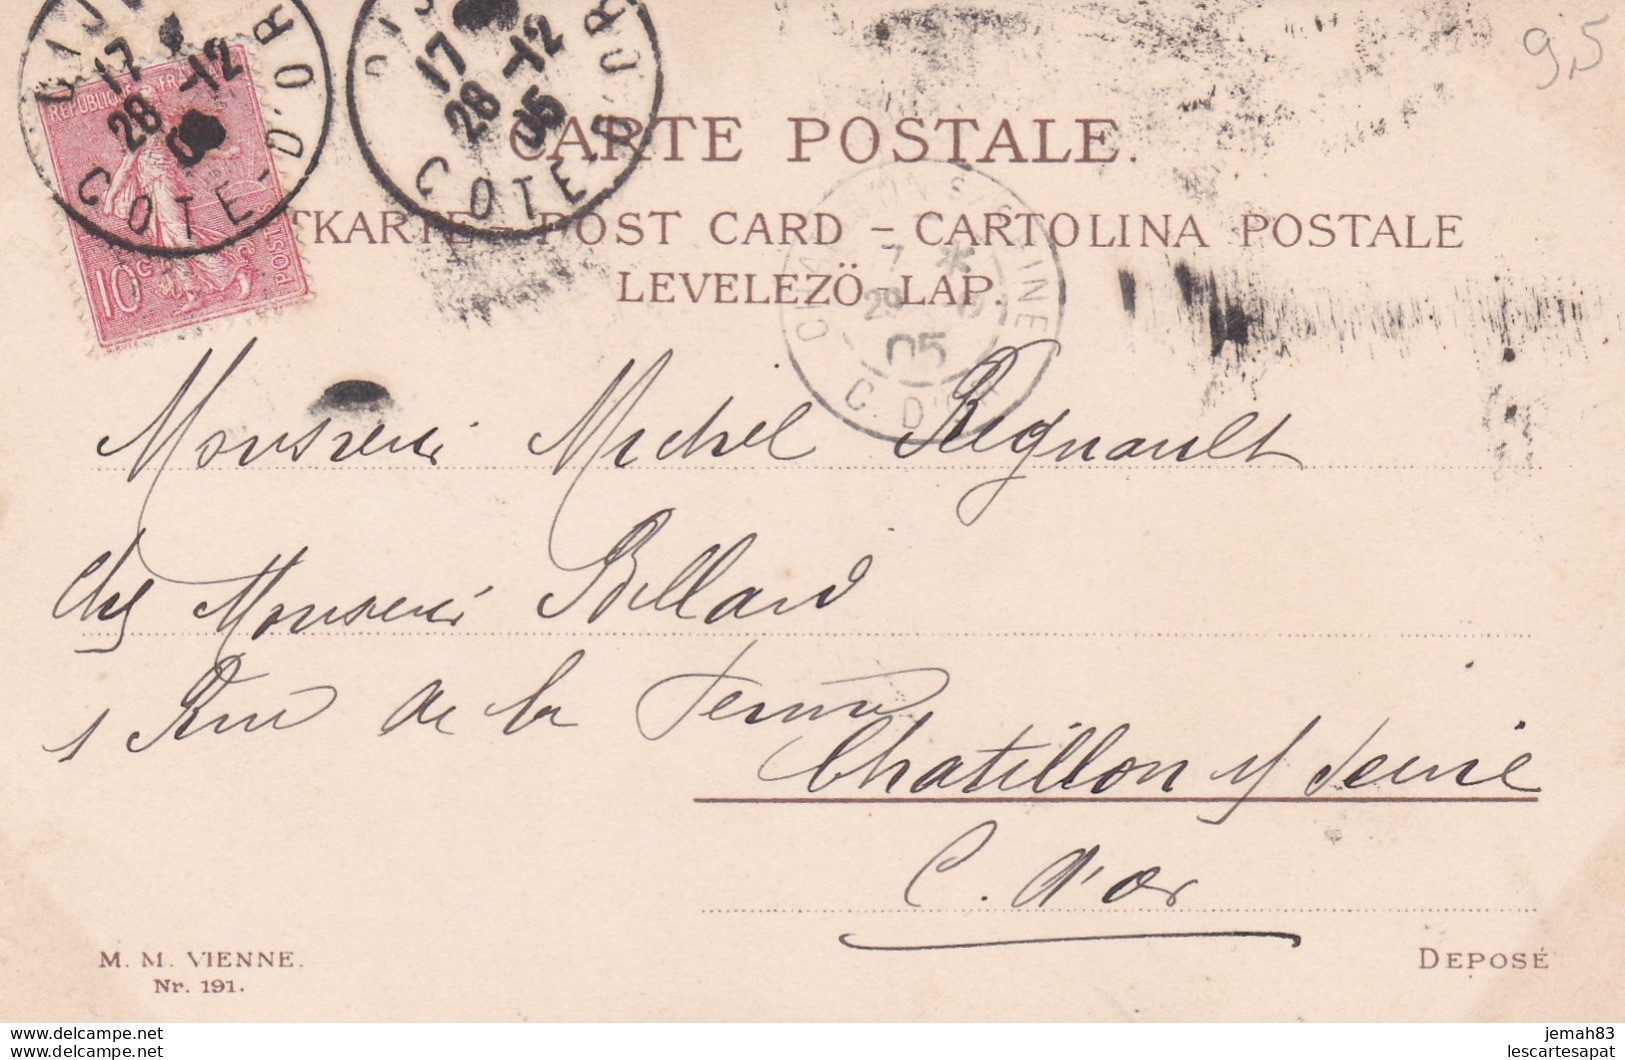 9,5
DIJON
17
28-12
05
COTE-D'OR
17
28-12
05
COTE-D'OR
REPUBLIQUE FRANÇAISE
POSTES
10c
CARTE POSTALE.
TKARTE - POST CARD - CARTOLINA POSTALE
LEVELEZÖ-LAP.
CHATILLON S/ SEINE
7 *
29
05
C. D'OR
Monsieur Michel Regnault
Chez Monsieur Billard
1 Rue de la
Chatillon s/ Seine
C. d'or
M. M. VIENNE.
Nr. 191.
DEPOSÉ
delcampe.net
delcampe.net
jemah83
lescartesapat